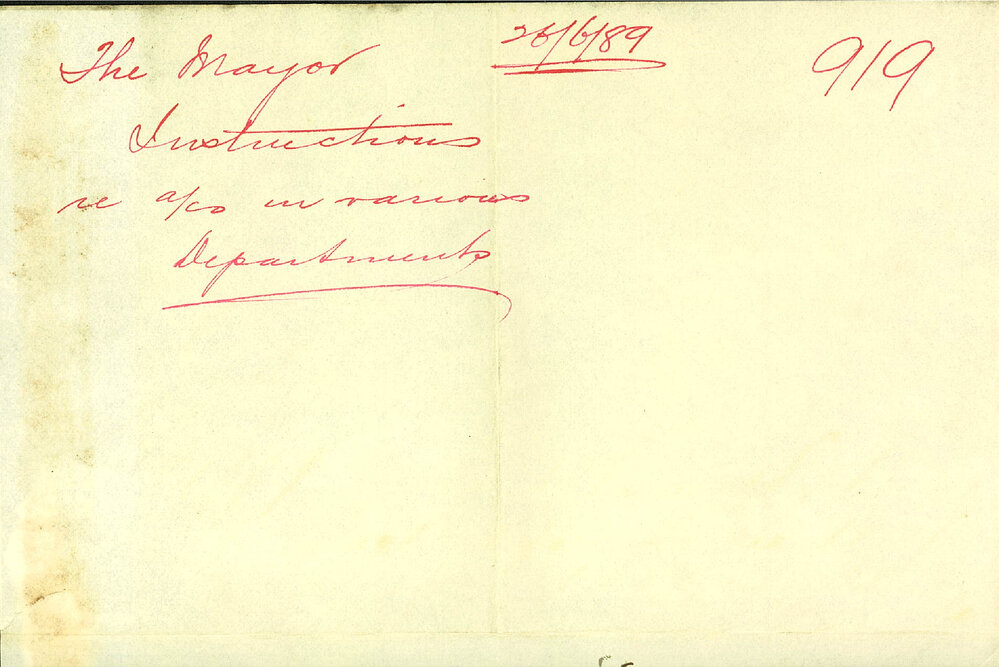 The Mayor
26/6/89
919
Instructions
re a/cs in various
Departments